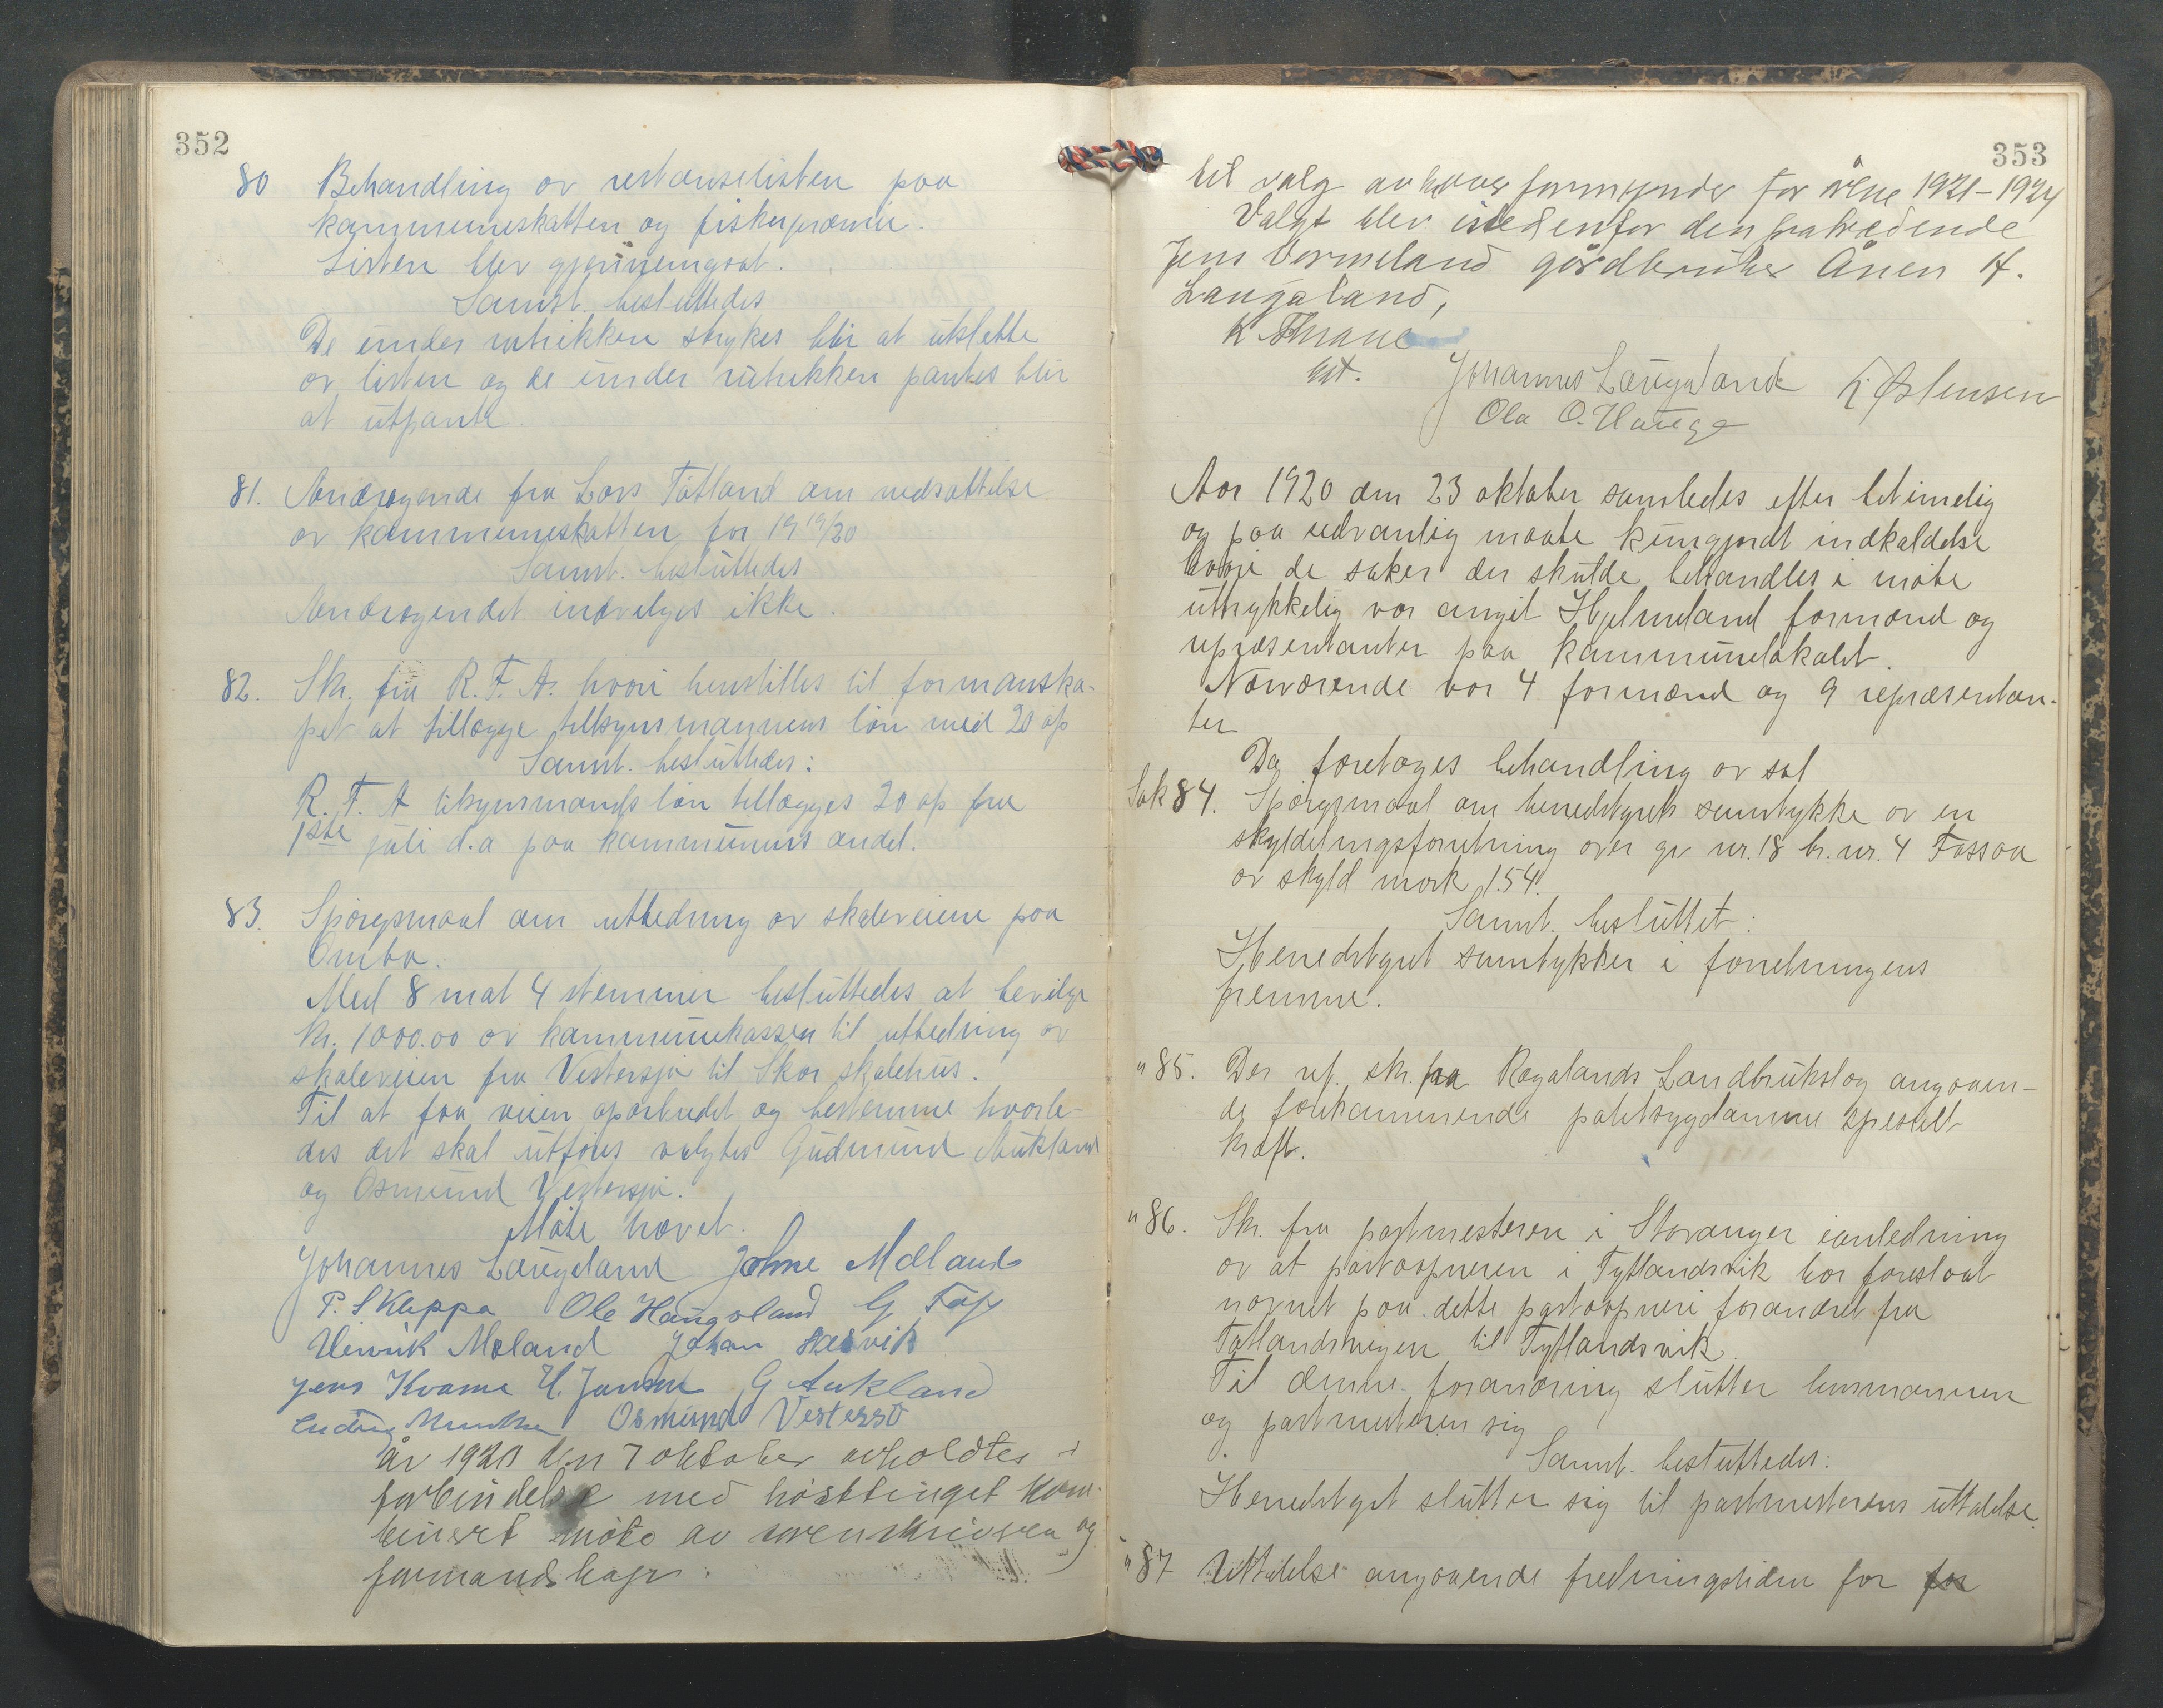 352
80 Behandling av restanselisten paa
kommuneskatten og fiskepræmie.
Listen blev gjennemgaat.
Samt. besluttedes
De under rubrikken strykes blir at utslette
av listen og de under rubrikken pantes blir
at utpante.
81. Andragende fra Lars Tøtland om nedsættelse
av kommuneskatten for 1919/20
Samt. besluttedes
Andragendet indvilges ikke.
82. Skr. fra R. F. A. hvori henstilles til formanska-
pet at tillægge tilsynsmannens løn med 20 op
Samt. besluttedes:
R. F. A tilsynsmands løn tillægges 20 op fra
1ste juli d.a paa kommunens andel.
83. Spørgsmaal om utbedring av skoleveiene paa
Ombo.
Med 8 mot 4 stemmer besluttedes at bevilge
kr. 1000.00 av kommunekassen til utbedring av
skoleveien fra Vestersjø til Skor skolehus.
Til at faa veien oparbeidet og bestemme hvorle-
des det skal utføres valgtes Gudmund Aukland
og Osmund Vestersjø.
Møte hævet.
Johannes Laugaland Johne Mæland
P. S Kleppa Ole Haugaland G. Foss
Henrik Mæland Johan Hesvik
Jens Kvame H. Jansen G Aukland
Osmund Vestersø
År 1920 den 7 oktober avholdtes i
forbindelse med høsttinget kom-
binert møte av sorenskriveren og
formandskap.
353
til valg av overformynder for årene 1921–1924
Valgt blev istedenfor den fratredende
Jens Vormeland gårdbruker Ånen H.
Laugaland,
K Thrane
Johannes Laugaland K Østensen
Ola O. Hauge
Aar 1920 den 23 oktober samledes efter betimelig
og paa sedvanlig maate kungjordt indkaldelse
hvori de saker der skulde behandles i møte
uttrykkelig var angit Hjelmeland formænd og
repræsentanter paa kommunelokalet.
Nærværende var 4 formænd og 9 repræsentan-
ter
Da foretoges behandling av sak
Sak 84. Spørgsmaal om herredstyrets samtykke av en
skyldelingsforretning over gr nr. 18 br. nr. 4 Fossaa
av skyld mark 1.54.
Samt. besluttet:
Herredstyret samtykker i forretningens
fremme.
" 85. Der ref. skr. fra Rogalands Landbrukslag angaaen-
de forekommende potetsygdomme spesielt
kræft.
" 86. Skr. fra postmesteren i Stavanger i anledning
av at postaapneren i Tytlandsvik har foreslaat
navnet paa dette postaapneri forandret fra
Tøtlandsvigen til Tytlandsvik.
Til denne forandring slutter lensmannen
og postmesteren sig
Samt. besluttedes:
Herredstyret slutter sig til postmesterens uttalelse.
" 87 Uttalelse angaaende fredningstiden for for